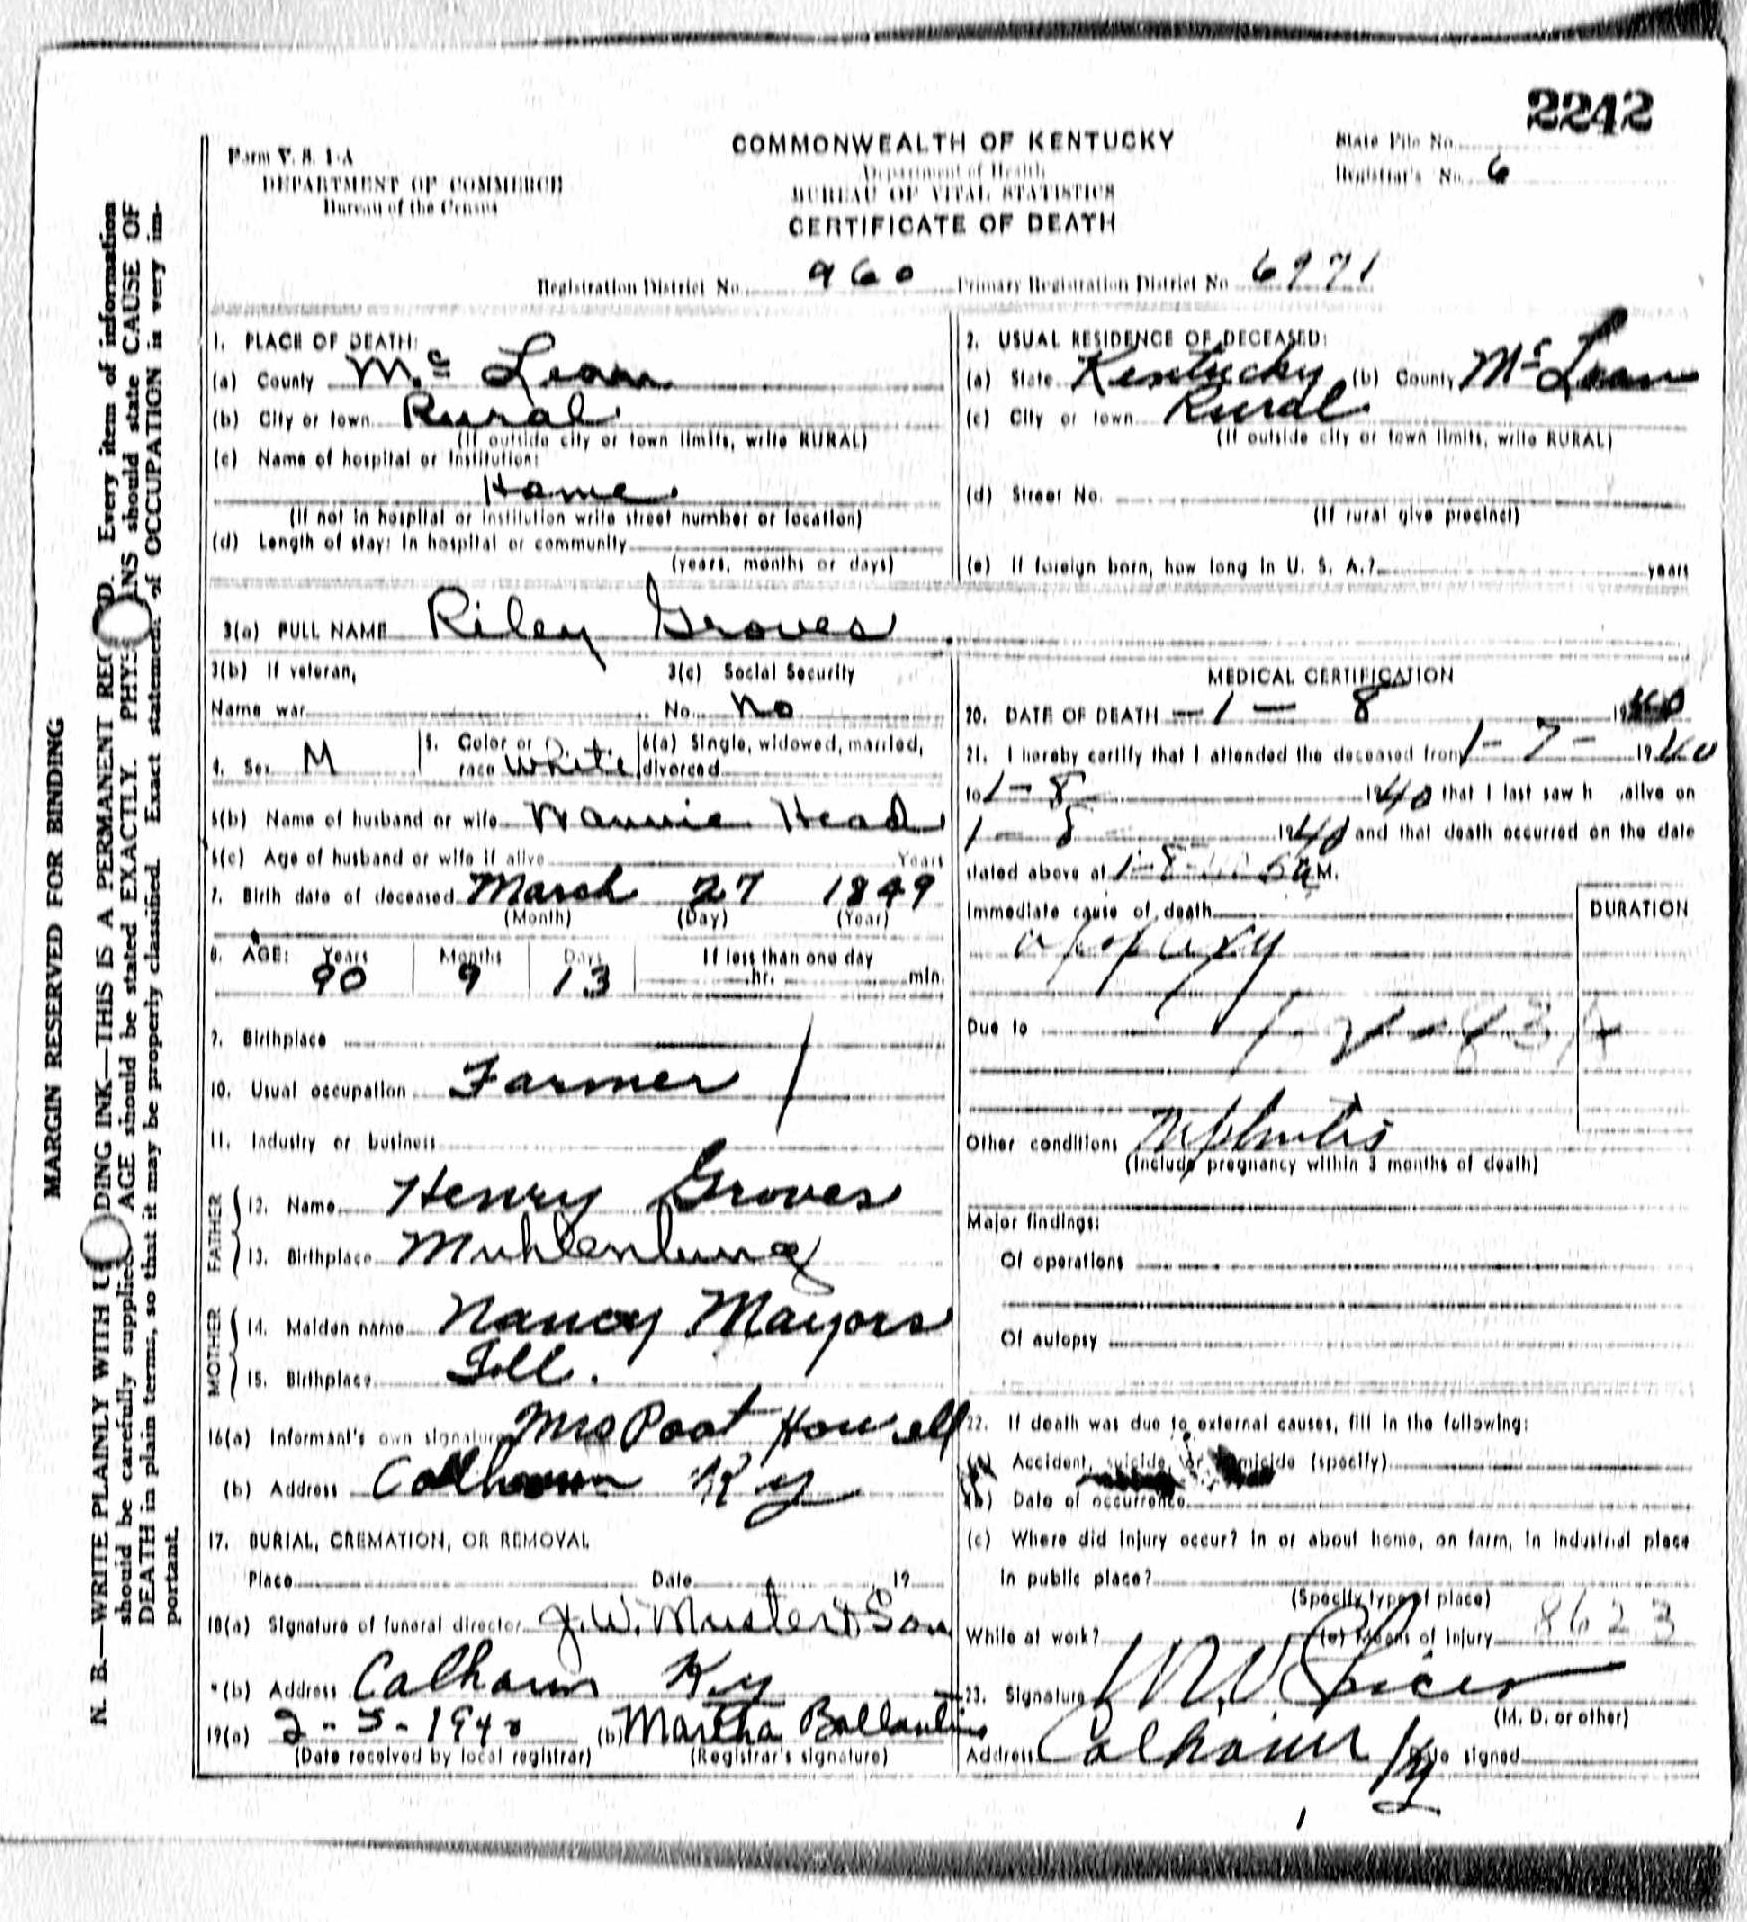 2242
Form V. S. 1-A
DEPARTMENT OF COMMERCE
Bureau of the Census
COMMONWEALTH OF KENTUCKY
Department of Health
BUREAU OF VITAL STATISTICS
CERTIFICATE OF DEATH
State File No.
Registrar's No. 6
Registration District No. 960 Primary Registration District No. 6971
1. PLACE OF DEATH:
(a) County Mc Lean
(b) City or town Rural
(If outside city or town limits, write RURAL)
(c) Name of hospital or institution:
Home
(If not in hospital or institution write street number or location)
(d) Length of stay: In hospital or community
(years, months or days)
2. USUAL RESIDENCE OF DECEASED:
(a) State Kentucky (b) County Mc Lean
(c) City or town Rural
(If outside city or town limits, write RURAL)
(d) Street No.
(If rural give precinct)
(e) If foreign born, how long in U. S. A.? years
3(a) FULL NAME Riley Groves
3(b) If veteran, 3(c) Social Security
Name war No. No
4. Sex M 5. Color or race White 6(a) Single, widowed, married, divorced
6(b) Name of husband or wife Nannie Head
6(c) Age of husband or wife if alive Years
7. Birth date of deceased March 27 1849
(Month) (Day) (Year)
8. AGE: Years Months Days If less than one day
90 9 13 hr. min.
9. Birthplace
10. Usual occupation Farmer
11. Industry or business
FATHER
12. Name Henry Groves
13. Birthplace Muhlenburg
MOTHER
14. Maiden name Nancy Mayors
15. Birthplace Ill.
16(a) Informant's own signature Mrs Poat Howell
(b) Address Calhoun Ky
17. BURIAL, CREMATION, OR REMOVAL
Place Date 19
18(a) Signature of funeral director J. W. Muster & Son
(b) Address Calhoun Ky
19(a) 2-5-1940 (b) Martha Ballantine
(Date received by local registrar) (Registrar's signature)
MEDICAL CERTIFICATION
20. DATE OF DEATH -1- 8 1940
21. I hereby certify that I attended the deceased from 1-7- 1940
to 1-8 1940 that I last saw h alive on
1-8- 1940 and that death occurred on the date
stated above at 1-8- M.
Immediate cause of death DURATION
apoplexy
Due to
Other conditions Nephritis
(Include pregnancy within 3 months of death)
Major findings:
Of operations
Of autopsy
22. If death was due to external causes, fill in the following:
(a) Accident, suicide, or homicide (specify)
(b) Date of occurrence
(c) Where did injury occur? In or about home, on farm, in industrial place
in public place?
(Specify type of place)
While at work? (e) Means of injury 8623
23. Signature
(M. D. or other)
Address Calhoun Ky Date signed
MARGIN RESERVED FOR BINDING
N. B.—WRITE PLAINLY WITH UNFADING INK—THIS IS A PERMANENT RECORD. Every item of information
should be carefully supplied. AGE should be stated EXACTLY. PHYSICIANS should state CAUSE OF
DEATH in plain terms, so that it may be properly classified. Exact statement of OCCUPATION is very im-
portant.